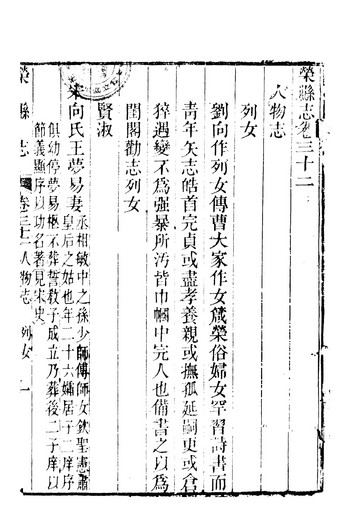 榮縣志卷三十二
人物志
列女
劉向作列女傳曹大家作女箴榮俗婦女罕習詩書而
靑年矢志皓首完貞或盡孝養親或撫孤延嗣更或倉
猝遇變不爲强暴所汚皆巾幗中完人也備書之以爲
閨閣勸志列女
賢淑
宋向氏王夢易妻丞相敏中之孫少師傅師女欽聖憲肅
皇后之姑也年二十六孀居子二庠序
俱幼停夢易柩不葬誓教子成立乃葬後二子庠以
節義顯序以功名著見宋史
榮縣志 卷三十二 人物志 列女 一